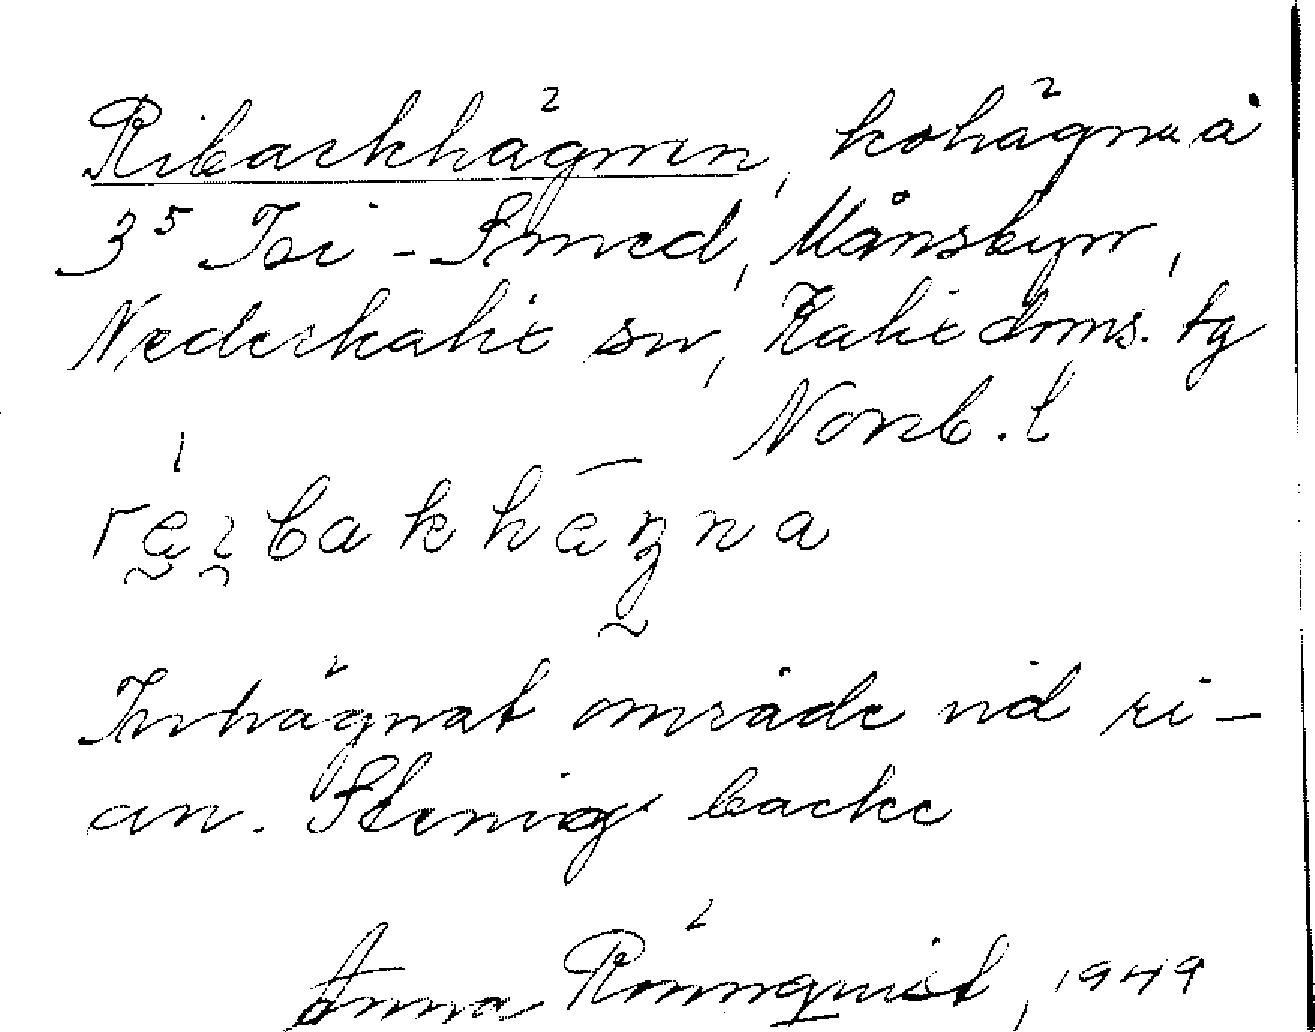 Ribackhägnen, kohägna å
3⁵ Isi-Smed, Månsbyn,
Nederkalix sn, Kalix doms. tg
Norrb. l
Inhägnat område vid ri-
an. Stenig backe
Anna Rönnquist, 1949